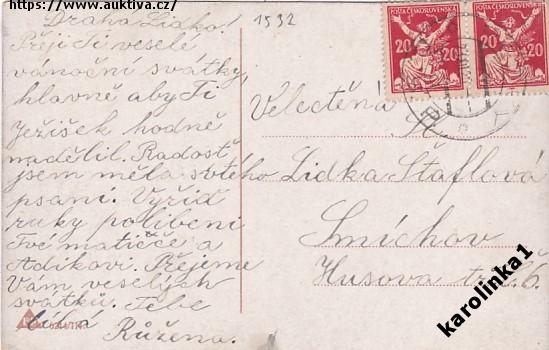 https://www.auktiva.cz/
1532
Drahá Lidko!
Přeji Ti veselé
vánoční svátky,
hlavně aby Ti
Ježíšek hodně
nadělil. Radost
jsem měla z tvého
psaní. Vyřiď
ruky políbení
Tvé matičce a
Adikovi. Přejeme
Vám veselých
svátků. Tebe
líbá
Růžena.
POŠTA ČESKOSLOVENSKÁ
20 20
POŠTA ČESKOSLOVENSKÁ
20 20
Velectěná
Lidka Štaflová
Smíchov
Husova tř. č. 6.
karolinka1